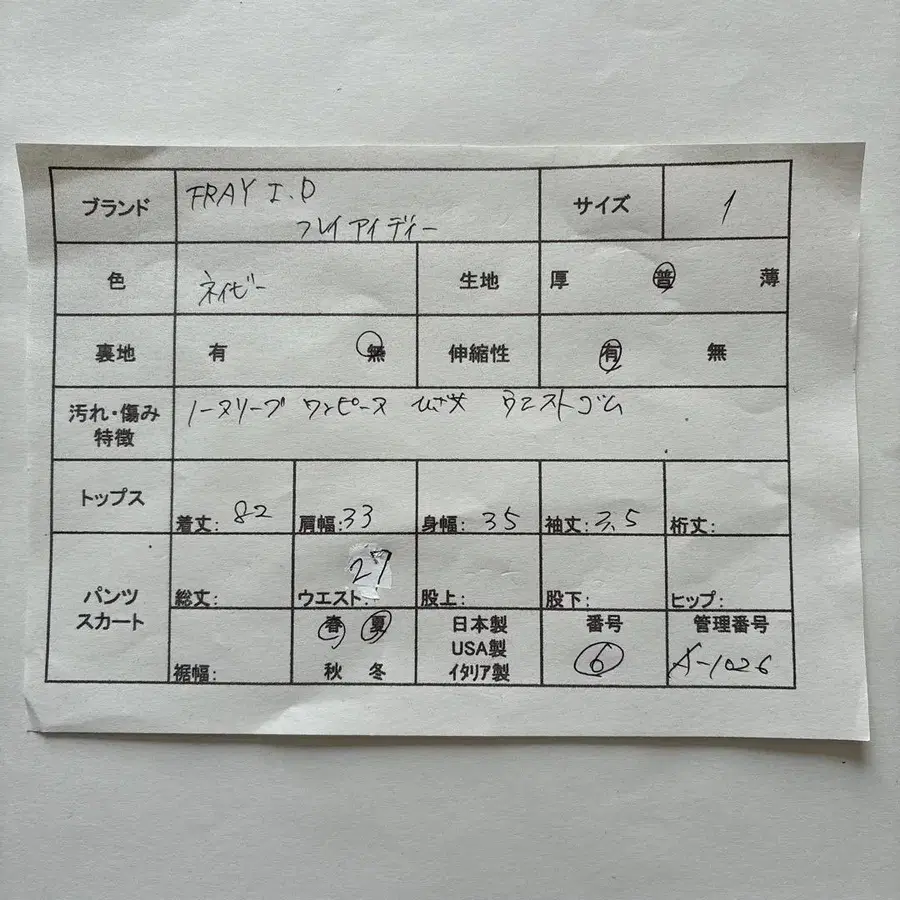 ブランド FRAY I.D サイズ 1
フレイアイディー
色 ネイビー 生地 厚 普 薄
裏地 有 無 伸縮性 有 無
汚れ・傷み ノースリーブ ワンピース ひざ丈 ウエストゴム
特徴
トップス 着丈: 82 肩幅: 33 身幅: 35 袖丈: 3.5 裄丈:
パンツ
スカート
総丈: ウエスト: 27 股上: 股下: ヒップ:
裾幅:
春 夏
秋 冬
日本製
USA製
イタリア製
番号
6
管理番号
A-1026